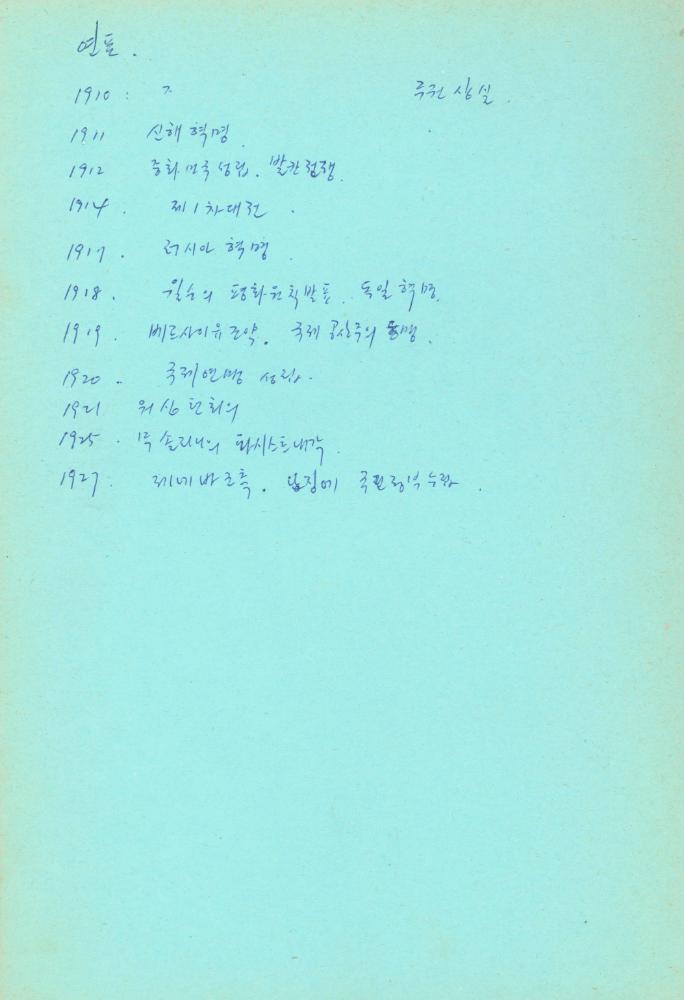 연표.
1910: ㅈ 주권 상실.
1911 신해 혁명.
1912 중화민국 성립. 발칸전쟁.
1914. 제1차대전.
1917. 러시아 혁명.
1918. 윌슨의 평화원칙발표. 독일 혁명.
1919. 베르사이유 조약. 국제 공산주의 동맹.
1920. 국제연맹 성립.
1921 워싱턴회의
1925. 뭇솔리니의 파시스트내각.
1927. 제네바 군축. 남경에 국민정부 수립.